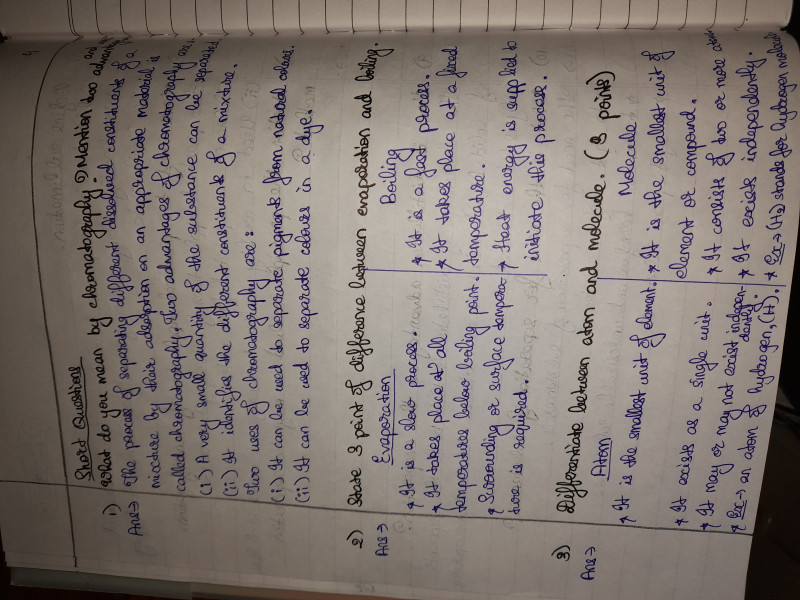 Short Questions
1) What do you mean by chromatography? Mention two advantages and
Ans→ The process of separating different dissolved constituents of a
mixture by their adsorption on an appropriate material is
called chromatography. Two advantages of chromatography are:
(i) A very small quantity of the substance can be separated
(ii) It identifies the different constituents of a mixture.
Two uses of chromatography are:
(i) It can be used to separate pigments from natural colours.
(ii) It can be used to separate colours in a dye.
2) State 3 point of difference between evaporation and boiling.
Ans→ Evaporation Boiling
* It is a slow process. * It is a fast process.
* It takes place at all * It takes place at a fixed
temperatures below boiling point. temperature.
* Surrounding or surface tempera- * Heat energy is supplied to
ture is required. initiate this process.
3) Differentiate between atom and molecule. (3 points)
Ans→ Atom Molecule
* It is the smallest unit of element. * It is the smallest unit of
element or compound.
* It exists as a single unit. * It consists of two or more atoms
* It may or may not exist indepen- * It exists independently.
dently.
* Ex→ an atom of hydrogen, (H). * Ex→ (H2) stands for hydrogen molecule